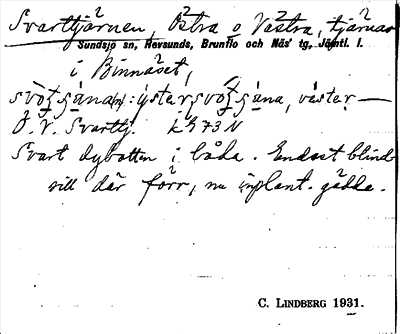 Svarttjärnen, Östra o Västra, tjärnar
Sundsjö sn, Revsunds, Brunflo och Näs' tg, Jämtl. l.
i Binnäset,
Ö. V. Svarttj. LG 73 N
Svart dybotten i båda. Endast blind
sill där förr, nu inplant. gädda.
C. LINDBERG 1931.